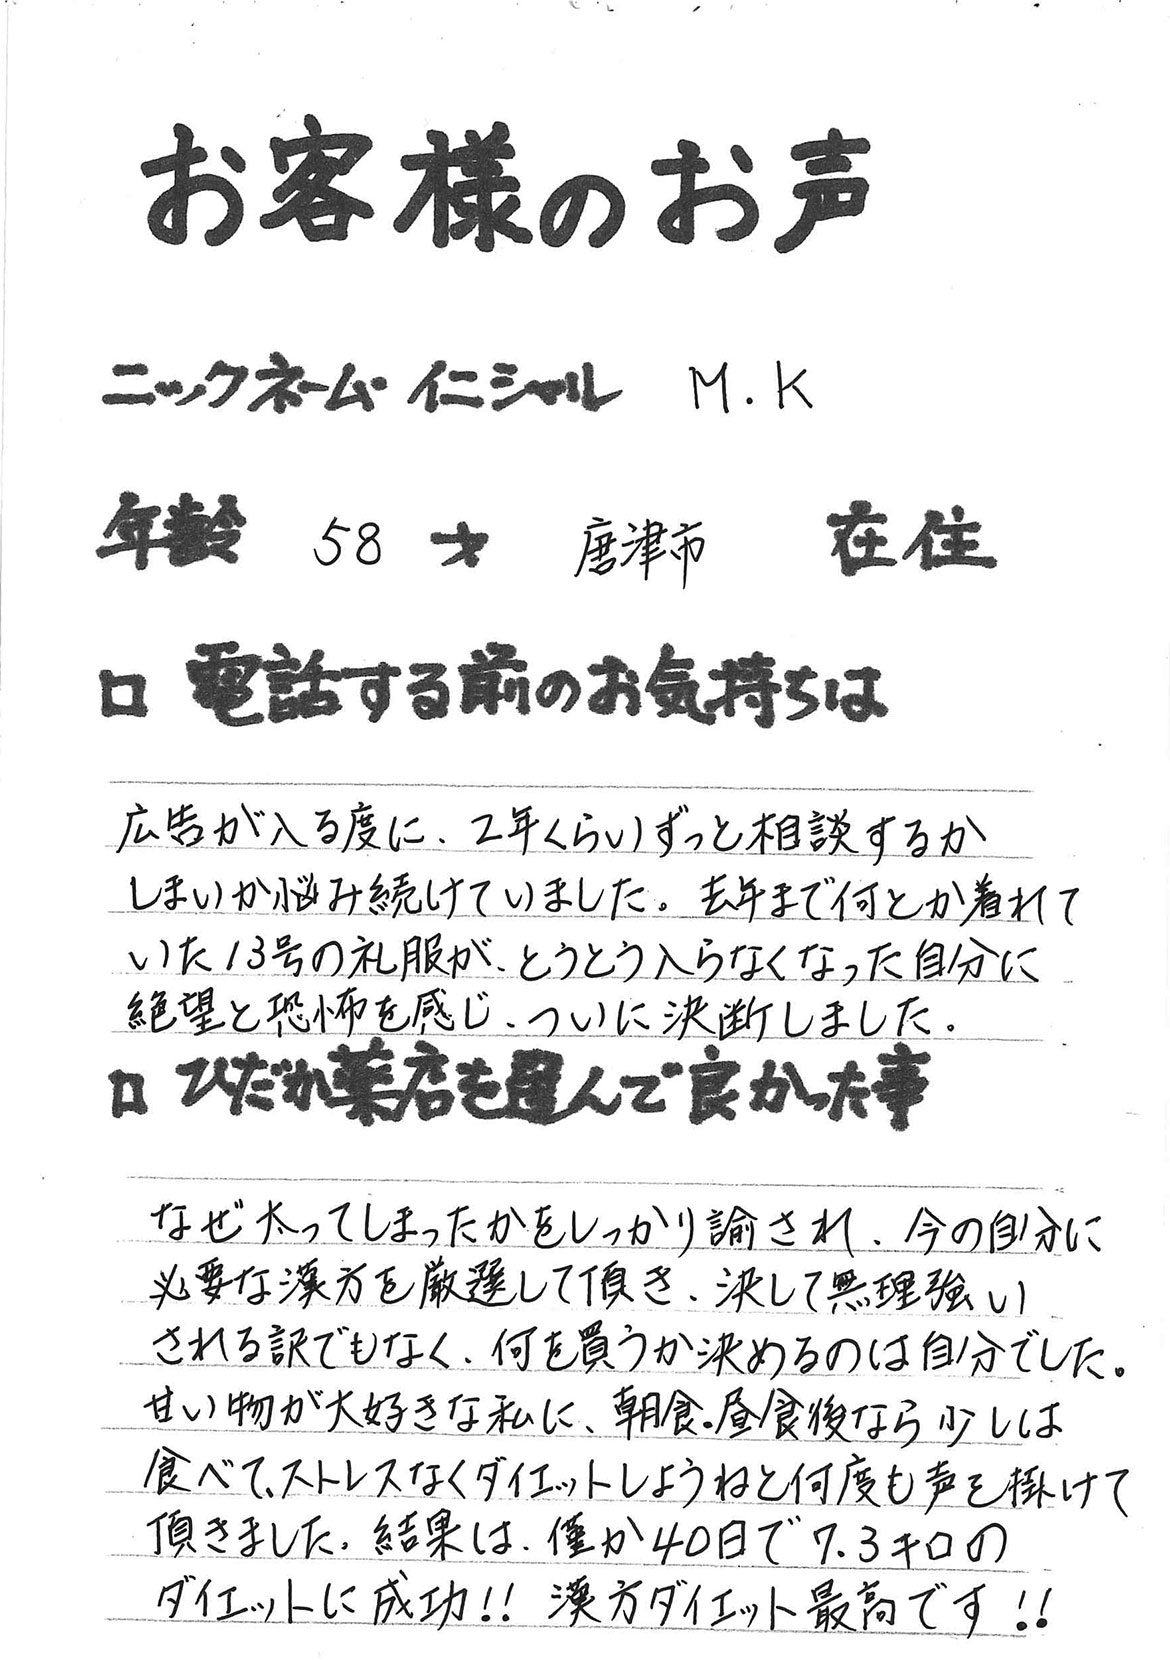 お客様のお声
ニックネーム・イニシャル M.K
年齢 58 才 唐津市 在住
□ 電話する前のお気持ちは
広告が入る度に、2年くらいずっと相談するか
しまいか悩み続けていました。去年まで何とか着れて
いた13号の礼服が、とうとう入らなくなった自分に
絶望と恐怖を感じ、ついに決断しました。
□ ひだか薬店を選んで良かった事
なぜ太ってしまったかをしっかり諭され、今の自分に
必要な漢方を厳選して頂き、決して無理強い
される訳でもなく、何を買うか決めるのは自分でした。
甘い物が大好きな私に、朝食・昼食後なら少しは
食べて、ストレスなくダイエットしようねと何度も声を掛けて
頂きました。結果は、僅か40日で7.3キロの
ダイエットに成功!! 漢方ダイエット最高です!!